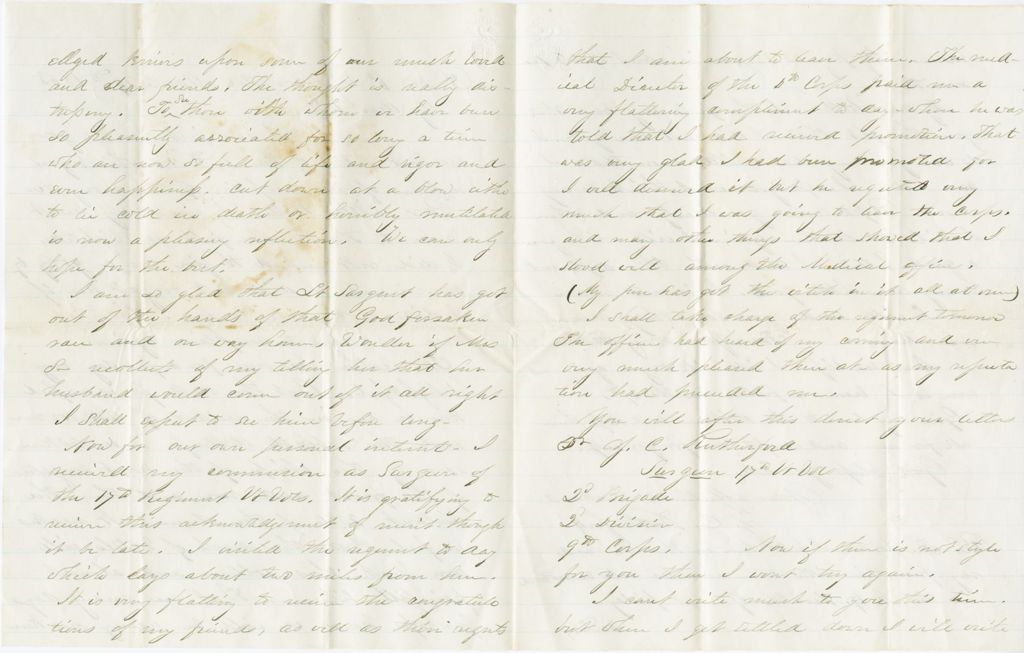 upon some of our much loved
and dear friends. The thought is really dis-
tressing. To See those with whom we have been
so pleasantly associated for so long a time
who are now so full of life and vigor and
even happiness. cut down at a blow
to lie cold in death or horribly mutilated
is now a pleasing reflection. We can only
hope for the best.
I am so glad that Lt Sargent has got
out of the hands of that God forsaken
race and on way home. Wonder if Mrs
S- recollects of my telling her that her
husband would come out of it all right
I shall expect to see him before long-
Now for our own personal interest- I
received my commission as Surgeon of
the 17th Regiment Vt Vols. It is gratifying to
receive this acknowledgement of merit though
it be late. I visited the regiment to day
which lays about two miles from here.
It is very flatting to receive the congratula
tions of my friends, as well as their regrets
that I am about to leave them. The med-
ical Director of the Corps paid me a
very flattering compliment to day - when he was
told that I had received promotion. That
was very glad I had been promoted for
I well deserved it but he regreted very
much that I was going to leave the Corps.
and many other things that showed that I
stood well among the Medical officers.
(My pen has got the in it all at once)
I shall take charge of the regiment tomorrow
The officers had heard of my coming and were
very much pleased there at- as my reputa
tion had preceeded me.
You will after this direct your letters
Dr J. C. Rutherford
Surgeon 17th Vt Vols
2d Brigade
2 Division
9th Corps. Now if there is not style
for you then I wont try again.
I cant write much to you this time.
but when I get settled down I will write